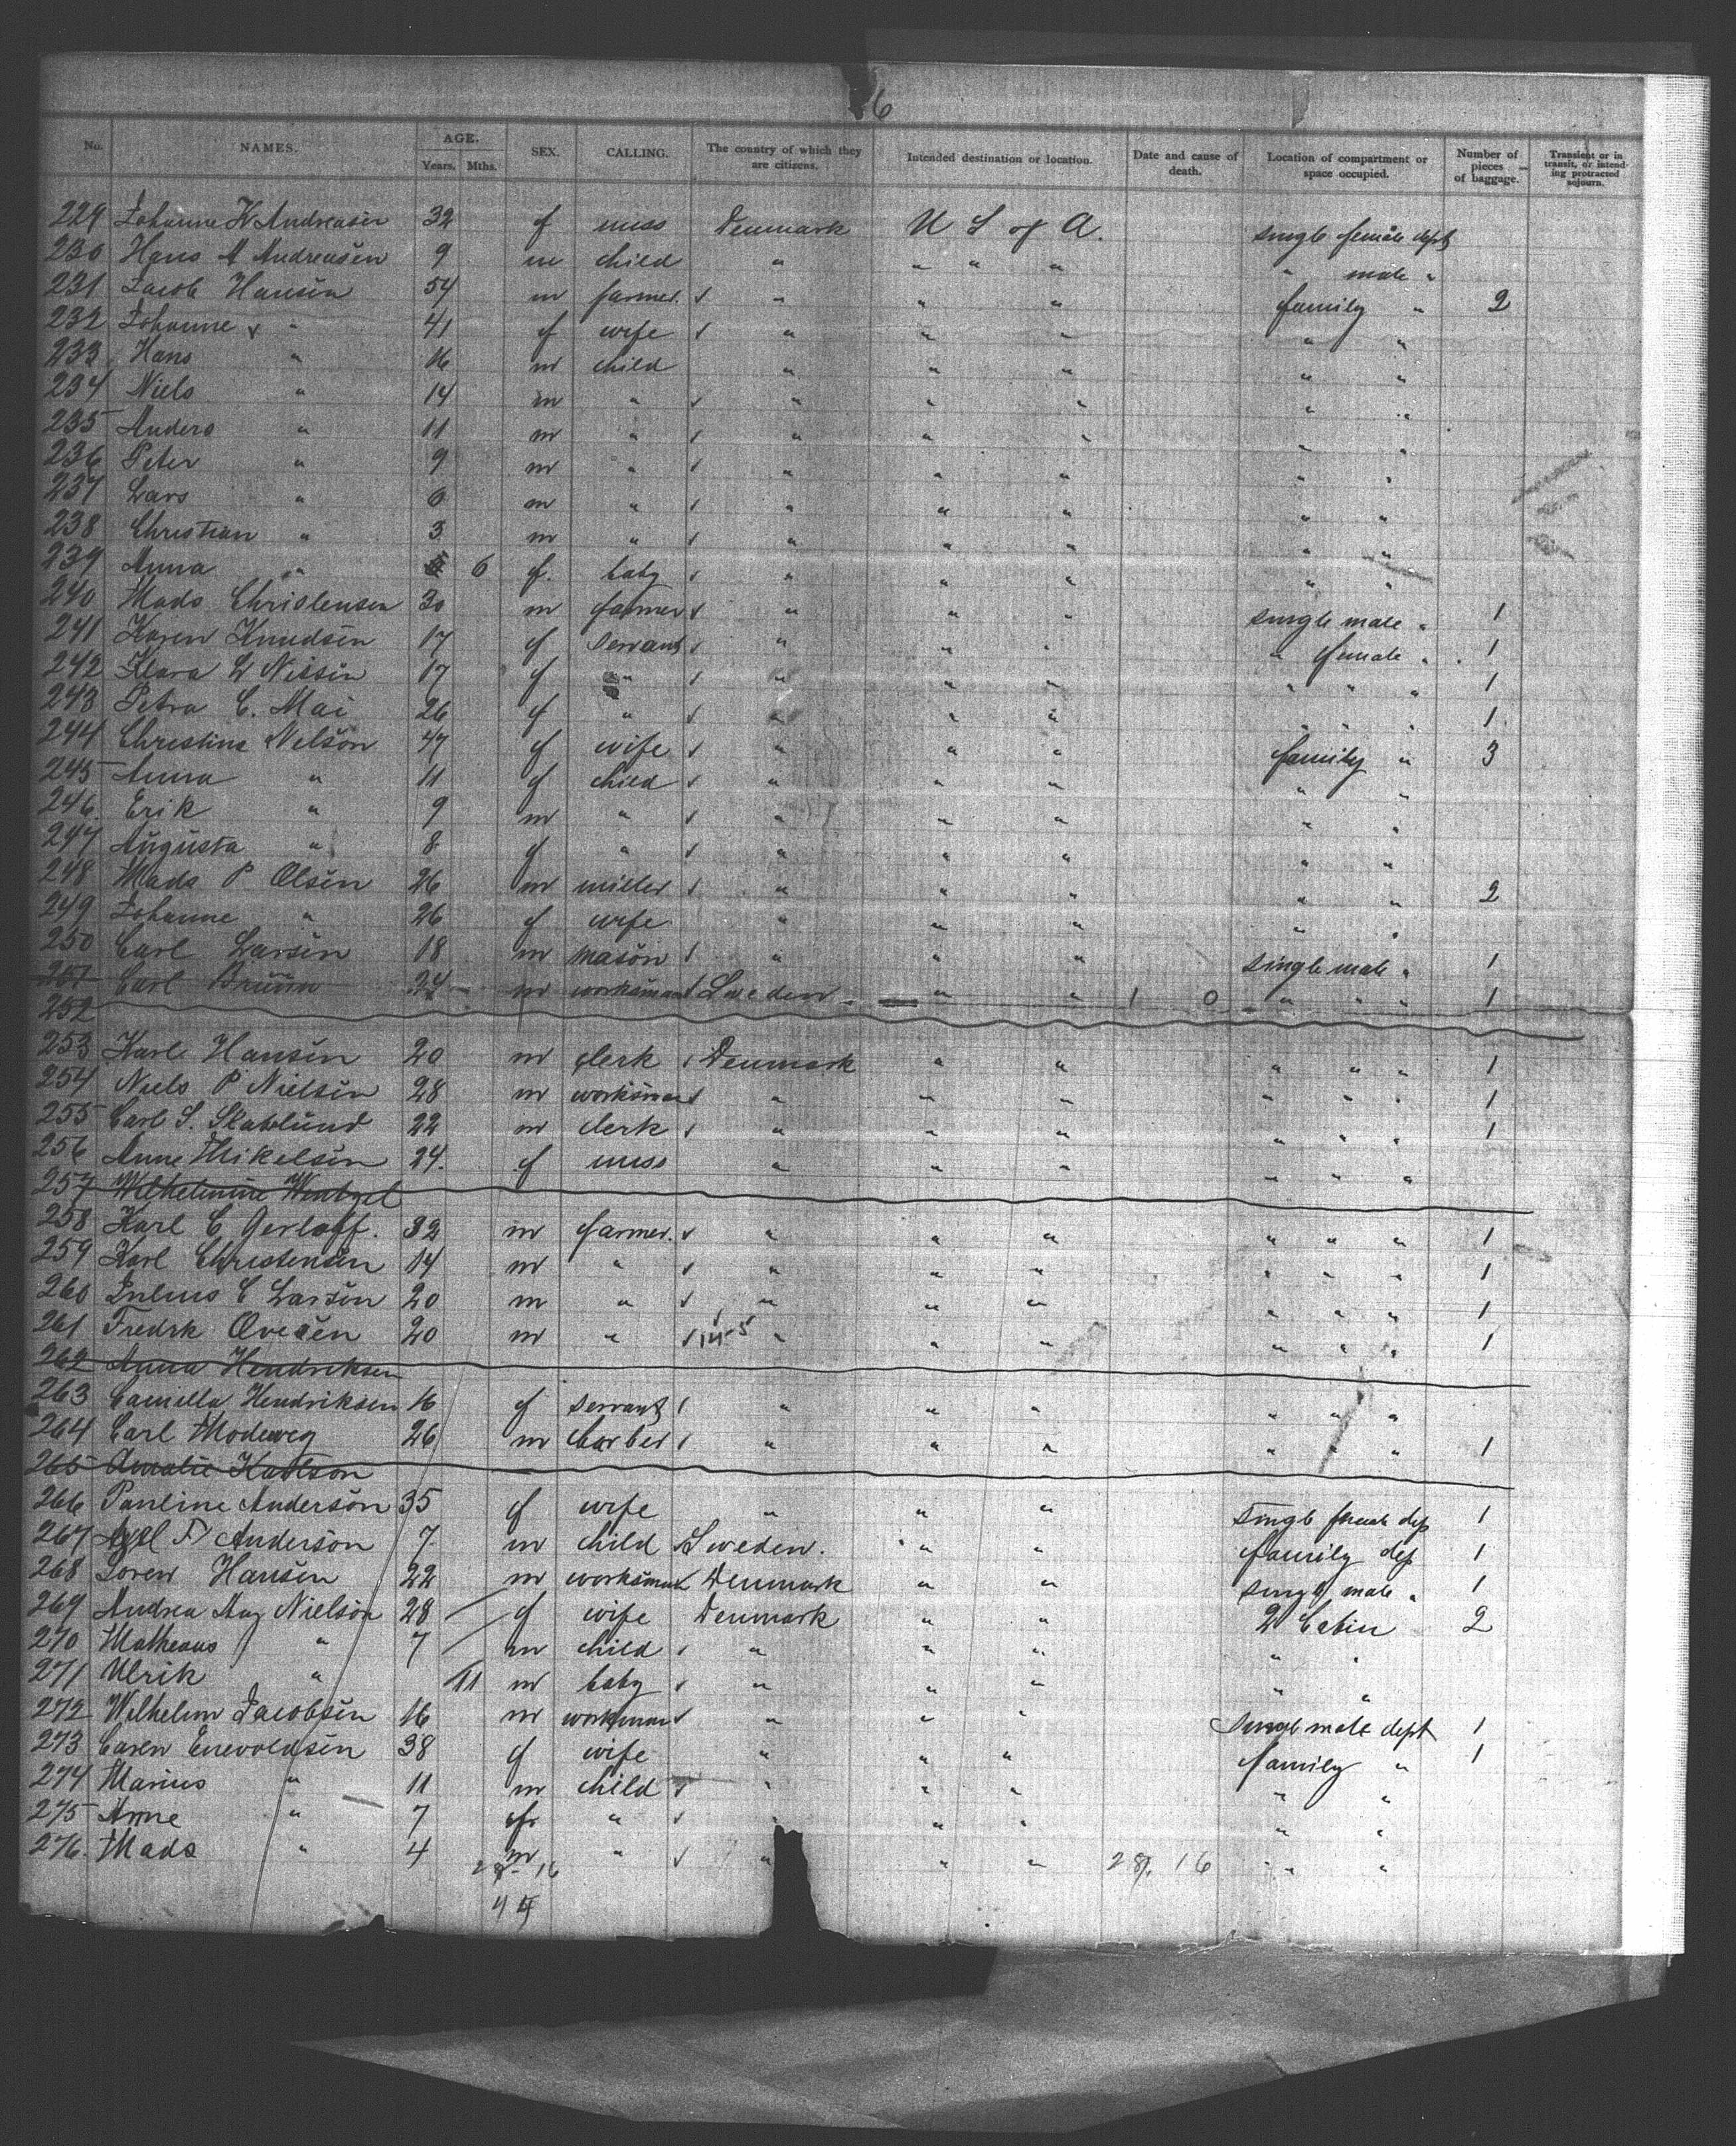 6
No. NAMES. AGE. Years. Mths. SEX. CALLING. The country of which they are citizens. Intended destination or location. Date and cause of death. Location of compartment or space occupied. Number of pieces of baggage. Transient or in transit, or intending protracted sojourn.
229 Johanne K Andreasen 32 f miss Denmark U S of A. single female dept
230 Hans A Andreasen 9 m child " " " " " male "
231 Jacob Hansen 54 m farmer. " " " family " 2
232 Johanne " 41 f wife " " " " "
233 Hans " 16 m child " " " " "
234 Niels " 14 m " " " " " "
235 Anders " 11 m " " " " "
236 Peter " 9 m " " " " " "
237 Lars " 6 m " " " " " "
238 Christian " 3 m " " " " " "
239 Anna " 6 f. baby " " " " "
240 Mads Christensen 30 m farmer " " " single male " 1
241 Karen Knudsen 17 f servant " " " " female " 1
242 Klara W Nissen 17 f " " " " " " " 1
243 Petra C. Mai 26 f " " " " " " " 1
244 Christine Nelson 47 f wife " " " family " 3
245 Anna " 11 f child " " " " "
246. Erik " 9 m " " " " " "
247 Augusta " 8 f " " " " " "
248 Mads P Olsen 26 m miller " " " " " 2
249 Johanne " 26 f wife " " " " "
250 Carl Larsen 18 m mason " " " single male " 1
251 Carl Brunn 24 m worksman Sweden " " 1 0 " " " 1
252
253 Karl Hansen 20 m clerk Denmark " " " " " 1
254 Niels P Nielsen 28 m worksman " " " " " " 1
255 Carl S. Skovlund 22 m clerk " " " " " " 1
256 Anne Mikelsen 24. f miss " " " " " "
257 Wilhelmine Wentzel
258 Karl C Gerloff. 32 m farmer. " " " " " " 1
259 Karl Christensen 14 m " " " " " " " 1
260 Julius C Larsen 20 m " " " " " " " 1
261 Fredrk Ovesen 20 m " " " " " " " 1
262 Anna Hendriksen
263 Camilla Hendriksen 16 f servant " " " " " "
264 Carl Modeweg 26 m barber " " " " " " 1
265 Amalie Karlson
266 Pauline Anderson 35 f wife " " " single female dep 1
267 Axel F Anderson 7 m child Sweden. " " family dep 1
268 Soren Hansen 22 m worksman Denmark " " single male " 1
269 Andrea Aug Nielson 28 f wife Denmark " " 2 Cabin 2
270 Matheus " 7 m child " " " " "
271 Ulrik " 11 m baby " " " " "
272 Wilhelm Jacobsen 16 m workman " " " single male dept 1
273 Caren Enevoldsen 38 f wife " " " family " 1
274 Marius " 11 m child " " " " "
275 Anne " 7 f " " " " " "
276. Mads " 4 m " " " " 28. 16 " "
28- 16